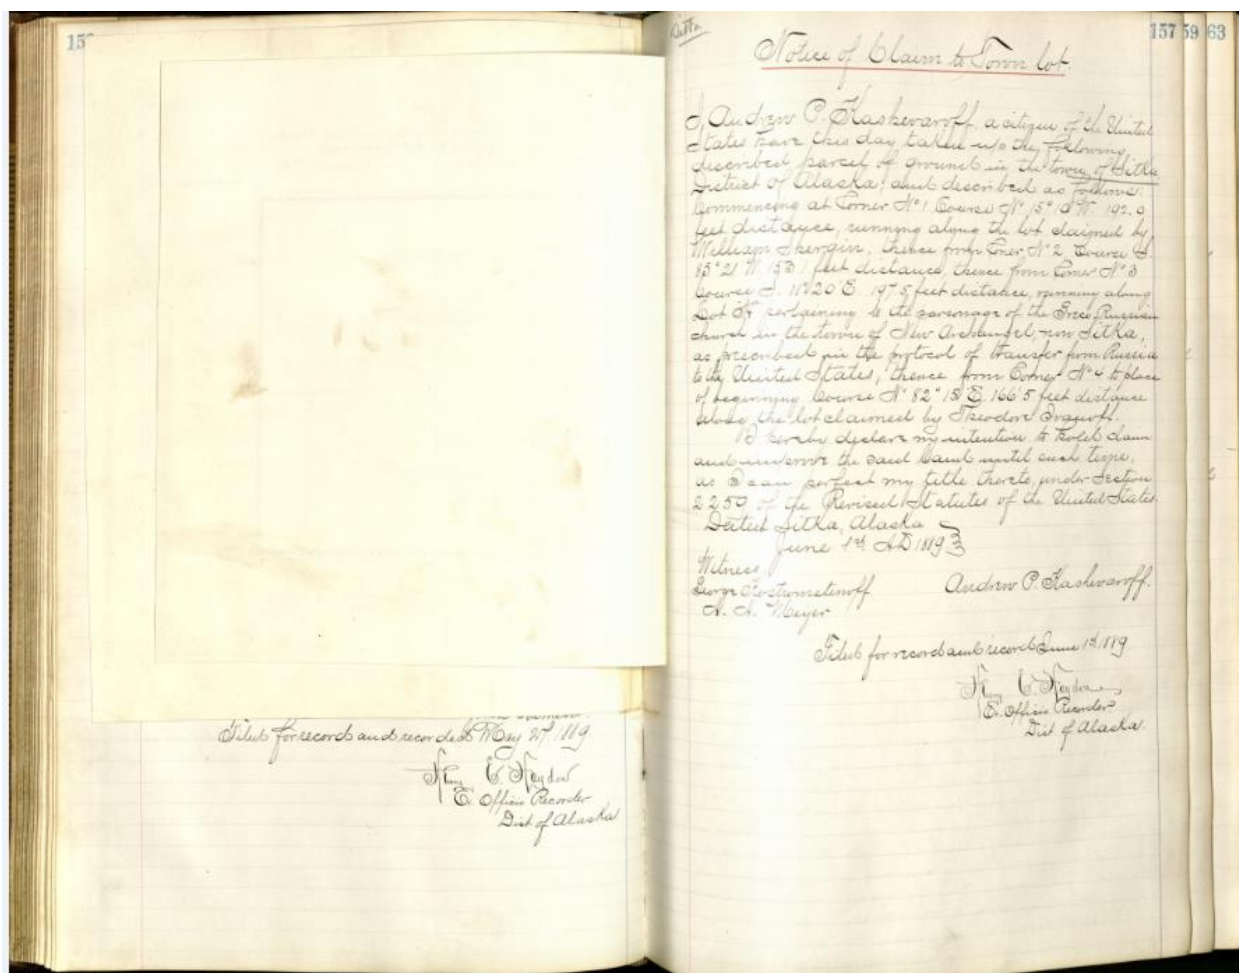 Filed for record and recorded May 27 1889
Henry E. Haydon
Ex Officio Recorder
Dist of Alaska
Sitka
157 59 63
Notice of Claim to Town lot.
I, Andrew P. Kashevaroff, a citizen of the United
States have this day taken up the following
described parcel of ground in the town of Sitka
District of Alaska, and described as follows:
Commencing at Corner No 1 Course N. 15° 10' W. 192.0
feet distance, running along the lot claimed by
William thence from Corner No 2, Course S.
85° 21' W. feet distance, thence from Corner No 3
Course S. 11° 20 E. 197.5 feet distance, running along
Lot pertaining to the parsonage of the Greco Russian
church in the town of New Archangel, now Sitka,
as prescribed in the protocol of transfer from Russia
to the United States, thence from Corner No 4 to place
of beginning Course N. 82° 15' E. 166.5 feet distance
along the lot claimed by Theodore
I hereby declare my intention to hold claim
and improve the said land until such time,
as I can perfect my title thereto, under Section
of the Revised Statutes of the United States.
Dated Sitka, Alaska
June 1st AD 1889
Witness
George Kostrometinoff Andrew P. Kashevaroff.
Meyer
Filed for record and record June 1st 1889
Henry E. Haydon
Ex Officio Recorder
Dist of Alaska.